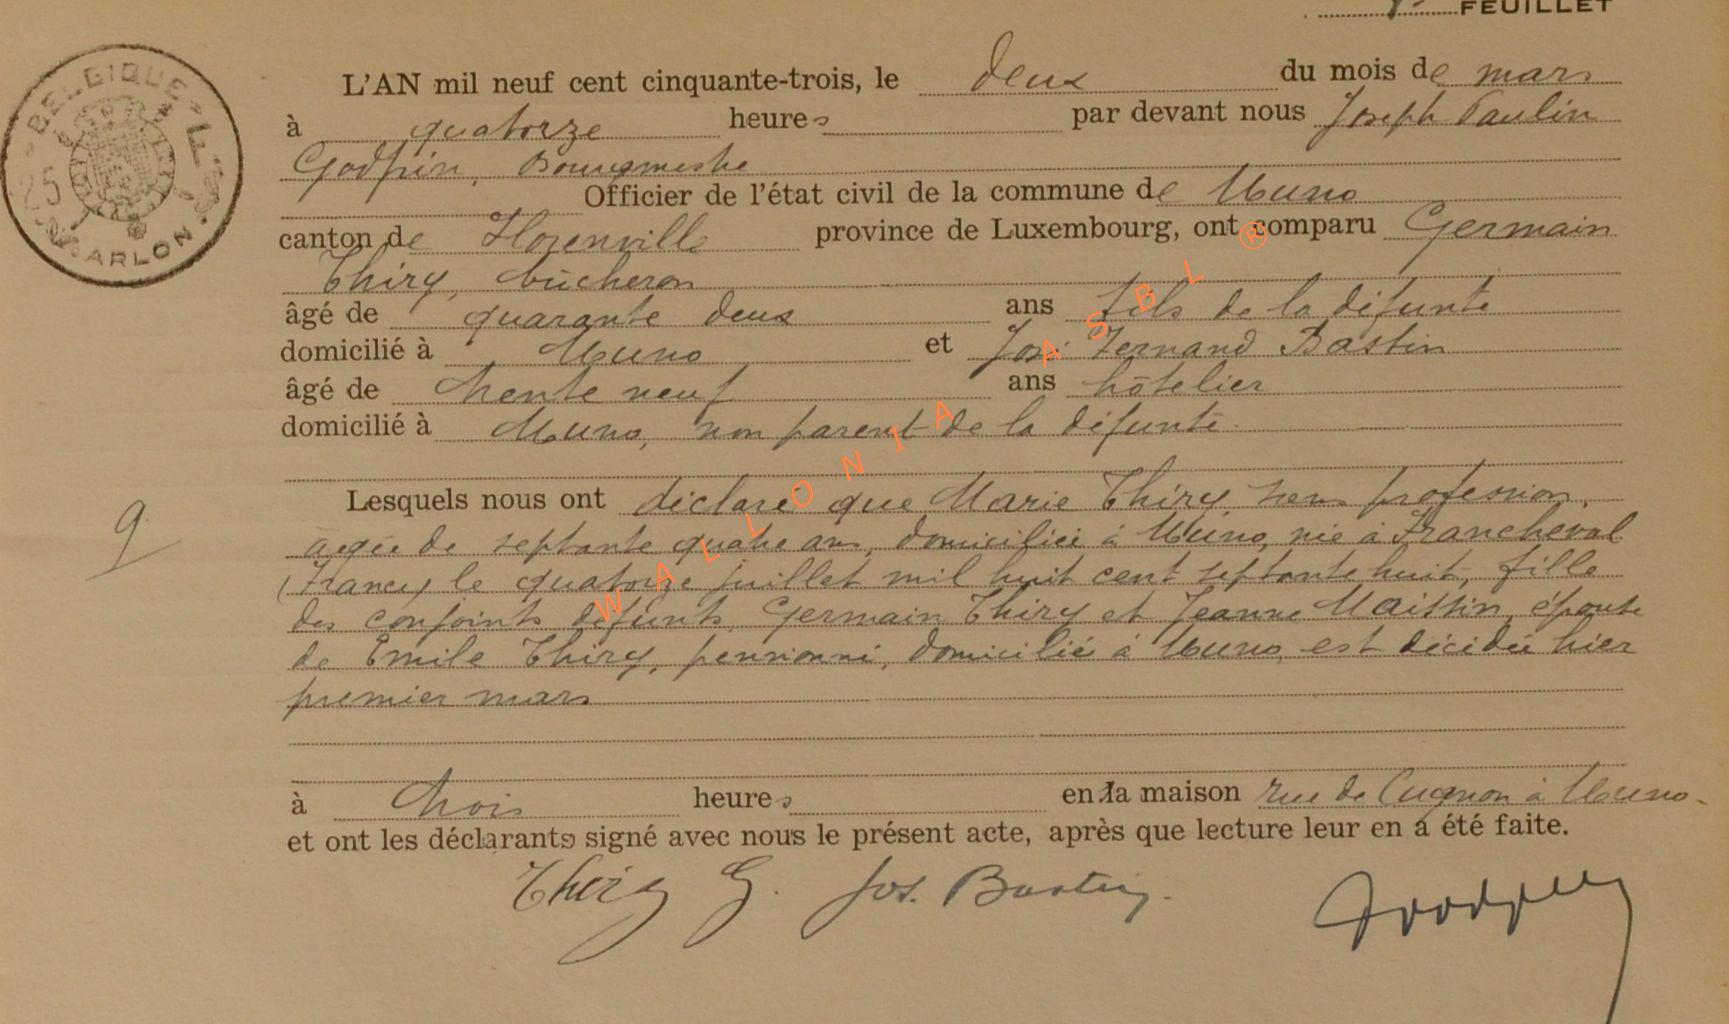 FEUILLET
BELGIQUE
25
ARLON
L'AN mil neuf cent cinquante-trois, le deux du mois de mars
à quatorze heures par devant nous Joseph Paulin
Godfrin, Bourgmestre
Officier de l'état civil de la commune de Muno
canton de Florenville province de Luxembourg, ont comparu Germain
Thiry, bûcheron
âgé de quarante deux ans fils de la défunte
domicilié à Muno et José Fernand Bastin
âgé de trente neuf ans hôtelier
domicilié à Muno, non parent de la défunte
Lesquels nous ont déclaré que Marie Thiry, sans profession,
9
agée de septante quatre ans, domiciliée à Muno, née à Francheval
(France) le quatorze juillet mil huit cent septante huit, fille
des conjoints défunts Germain Thiry et Jeanne Maissin, épouse
de Emile Thiry, pensionné, domicilié à Muno, est décédée hier
premier mars
à trois heures en la maison rue de Cugnon à Muno.
et ont les déclarants signé avec nous le présent acte, après que lecture leur en a été faite.
Thiry G. Jos. Bastin.
WALLONIA ASBL ®